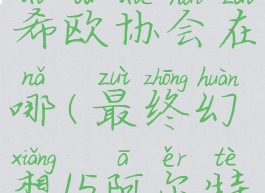 希欧协会在
nǎ zuì zhōng huàn
哪(最终幻
xiǎng ā ěr tè
想15阿尔特